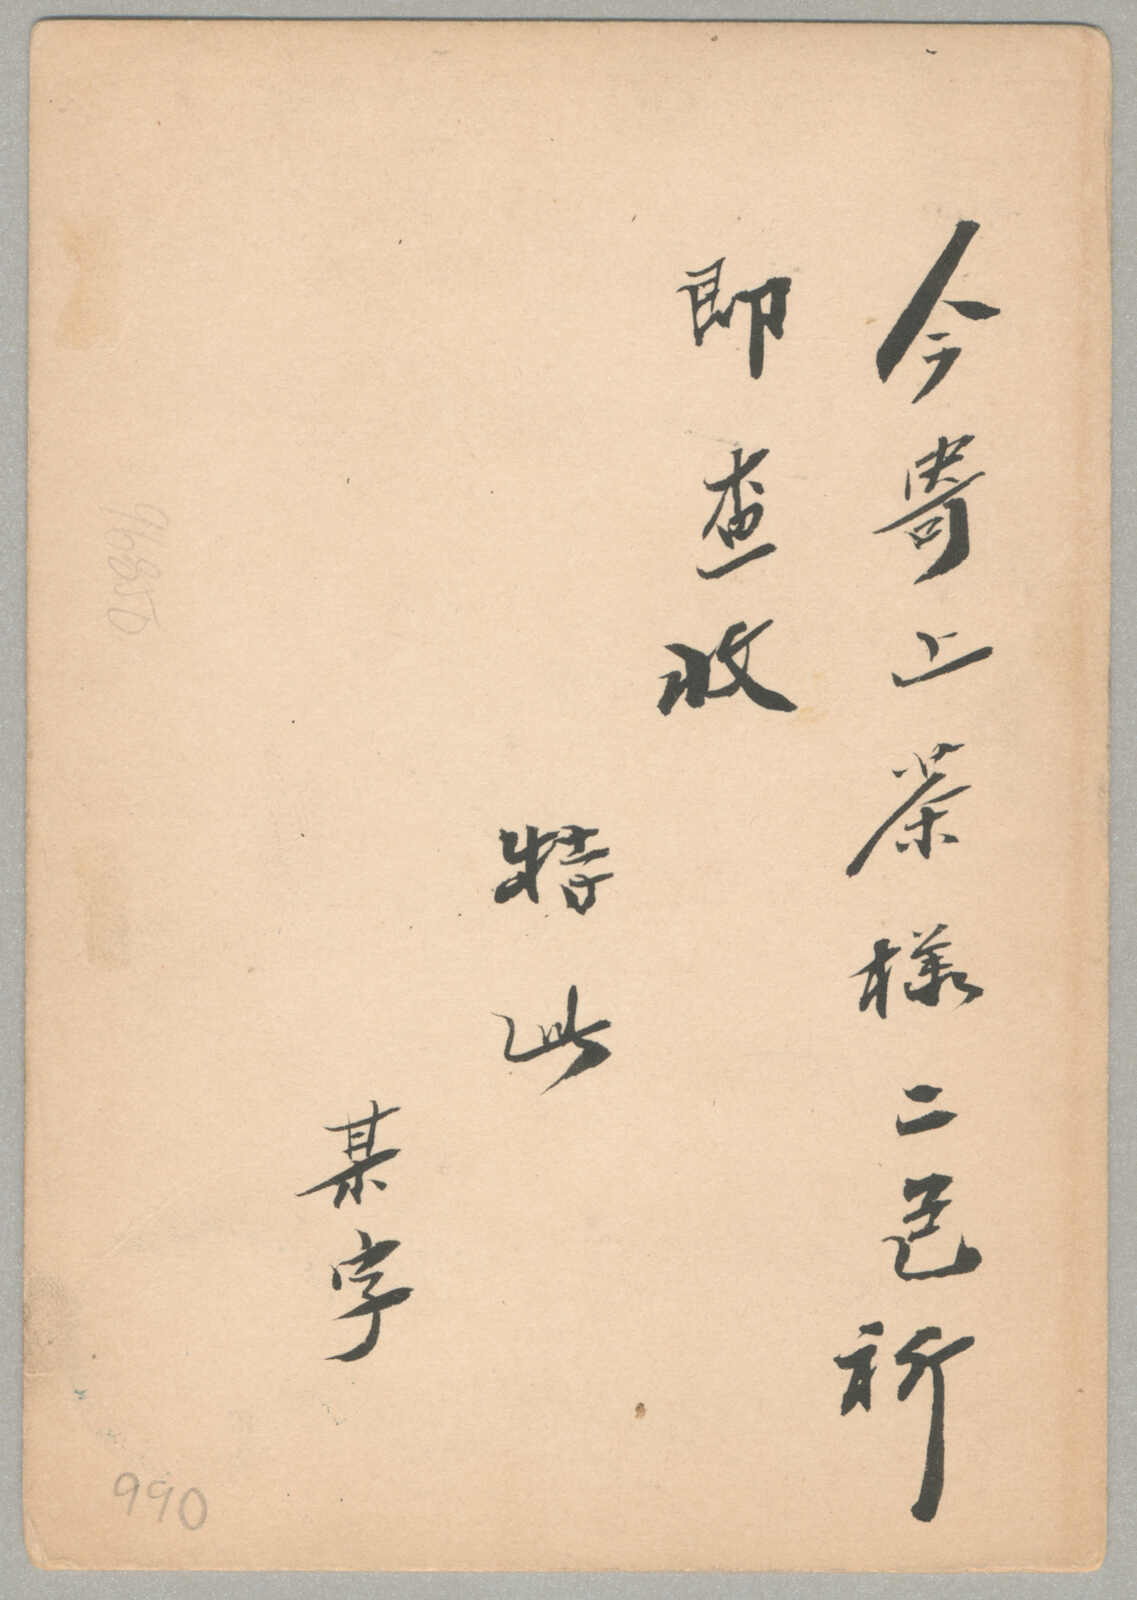 今寄上茶樣二包祈
即查收
特此
某字
990